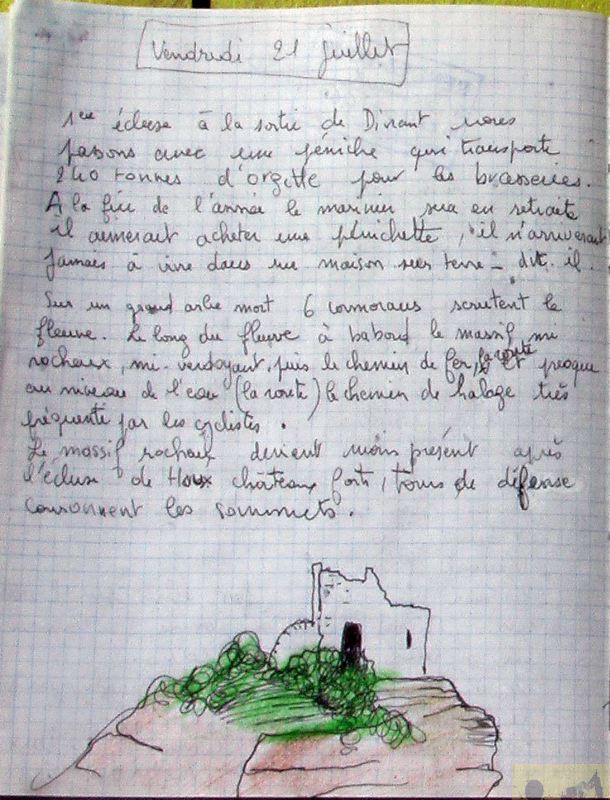 Vendredi 21 juillet
1ere écluse à la sortie de Dinant nous
passons avec une péniche qui transporte
240 tonnes d'orgette pour les brasseries.
A la fin de l'année le marinier sera en retraite
il aimerait acheter une pénichette, il n'arriverait
jamais à vivre dans une maison sur terre - dit il.
Sur un grand arbre mort 6 cormorans scrutent le
fleuve. Le long du fleuve à babord le massif mi
rocheux, mi-verdoyant, puis le chemin de fer, la route et presque
au niveau de l'eau (la route) le chemin de halage très
fréquenté par les cyclistes.
Le massif rocheux devient moins présent après
l'écluse de Houx châteaux forts, tours de défense
couronnent les sommets.